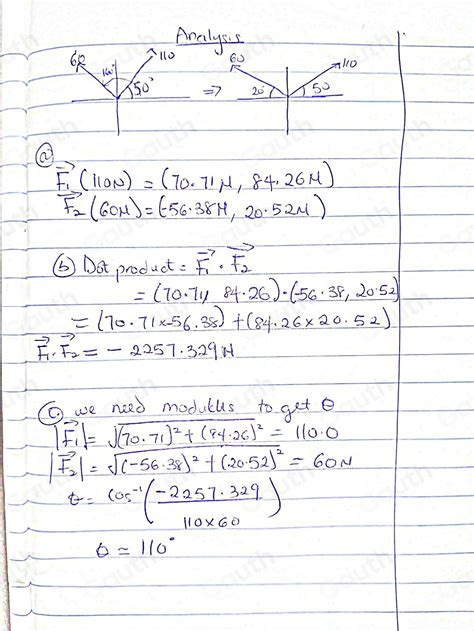 Analysis
60 160° 110 50° ⇒ 60 20° 110 50
(a)
F₁ (110N) = (70.71N, 84.26N)
F₂ (60N) = (-56.38N, 20.52N)
(b) Dot product = F₁ · F₂
= (70.71, 84.26) · (-56.38, 20.52)
= (70.71 x -56.38) + (84.26 x 20.52)
F₁ · F₂ = - 2257.329 N
(c) we need modulus to get θ
|F₁| = √(70.71)² + (84.26)² = 110.0
|F₂| = √(-56.38)² + (20.52)² = 60N
θ = cos⁻¹ (-2257.329
110 x 60)
θ ≈ 110°